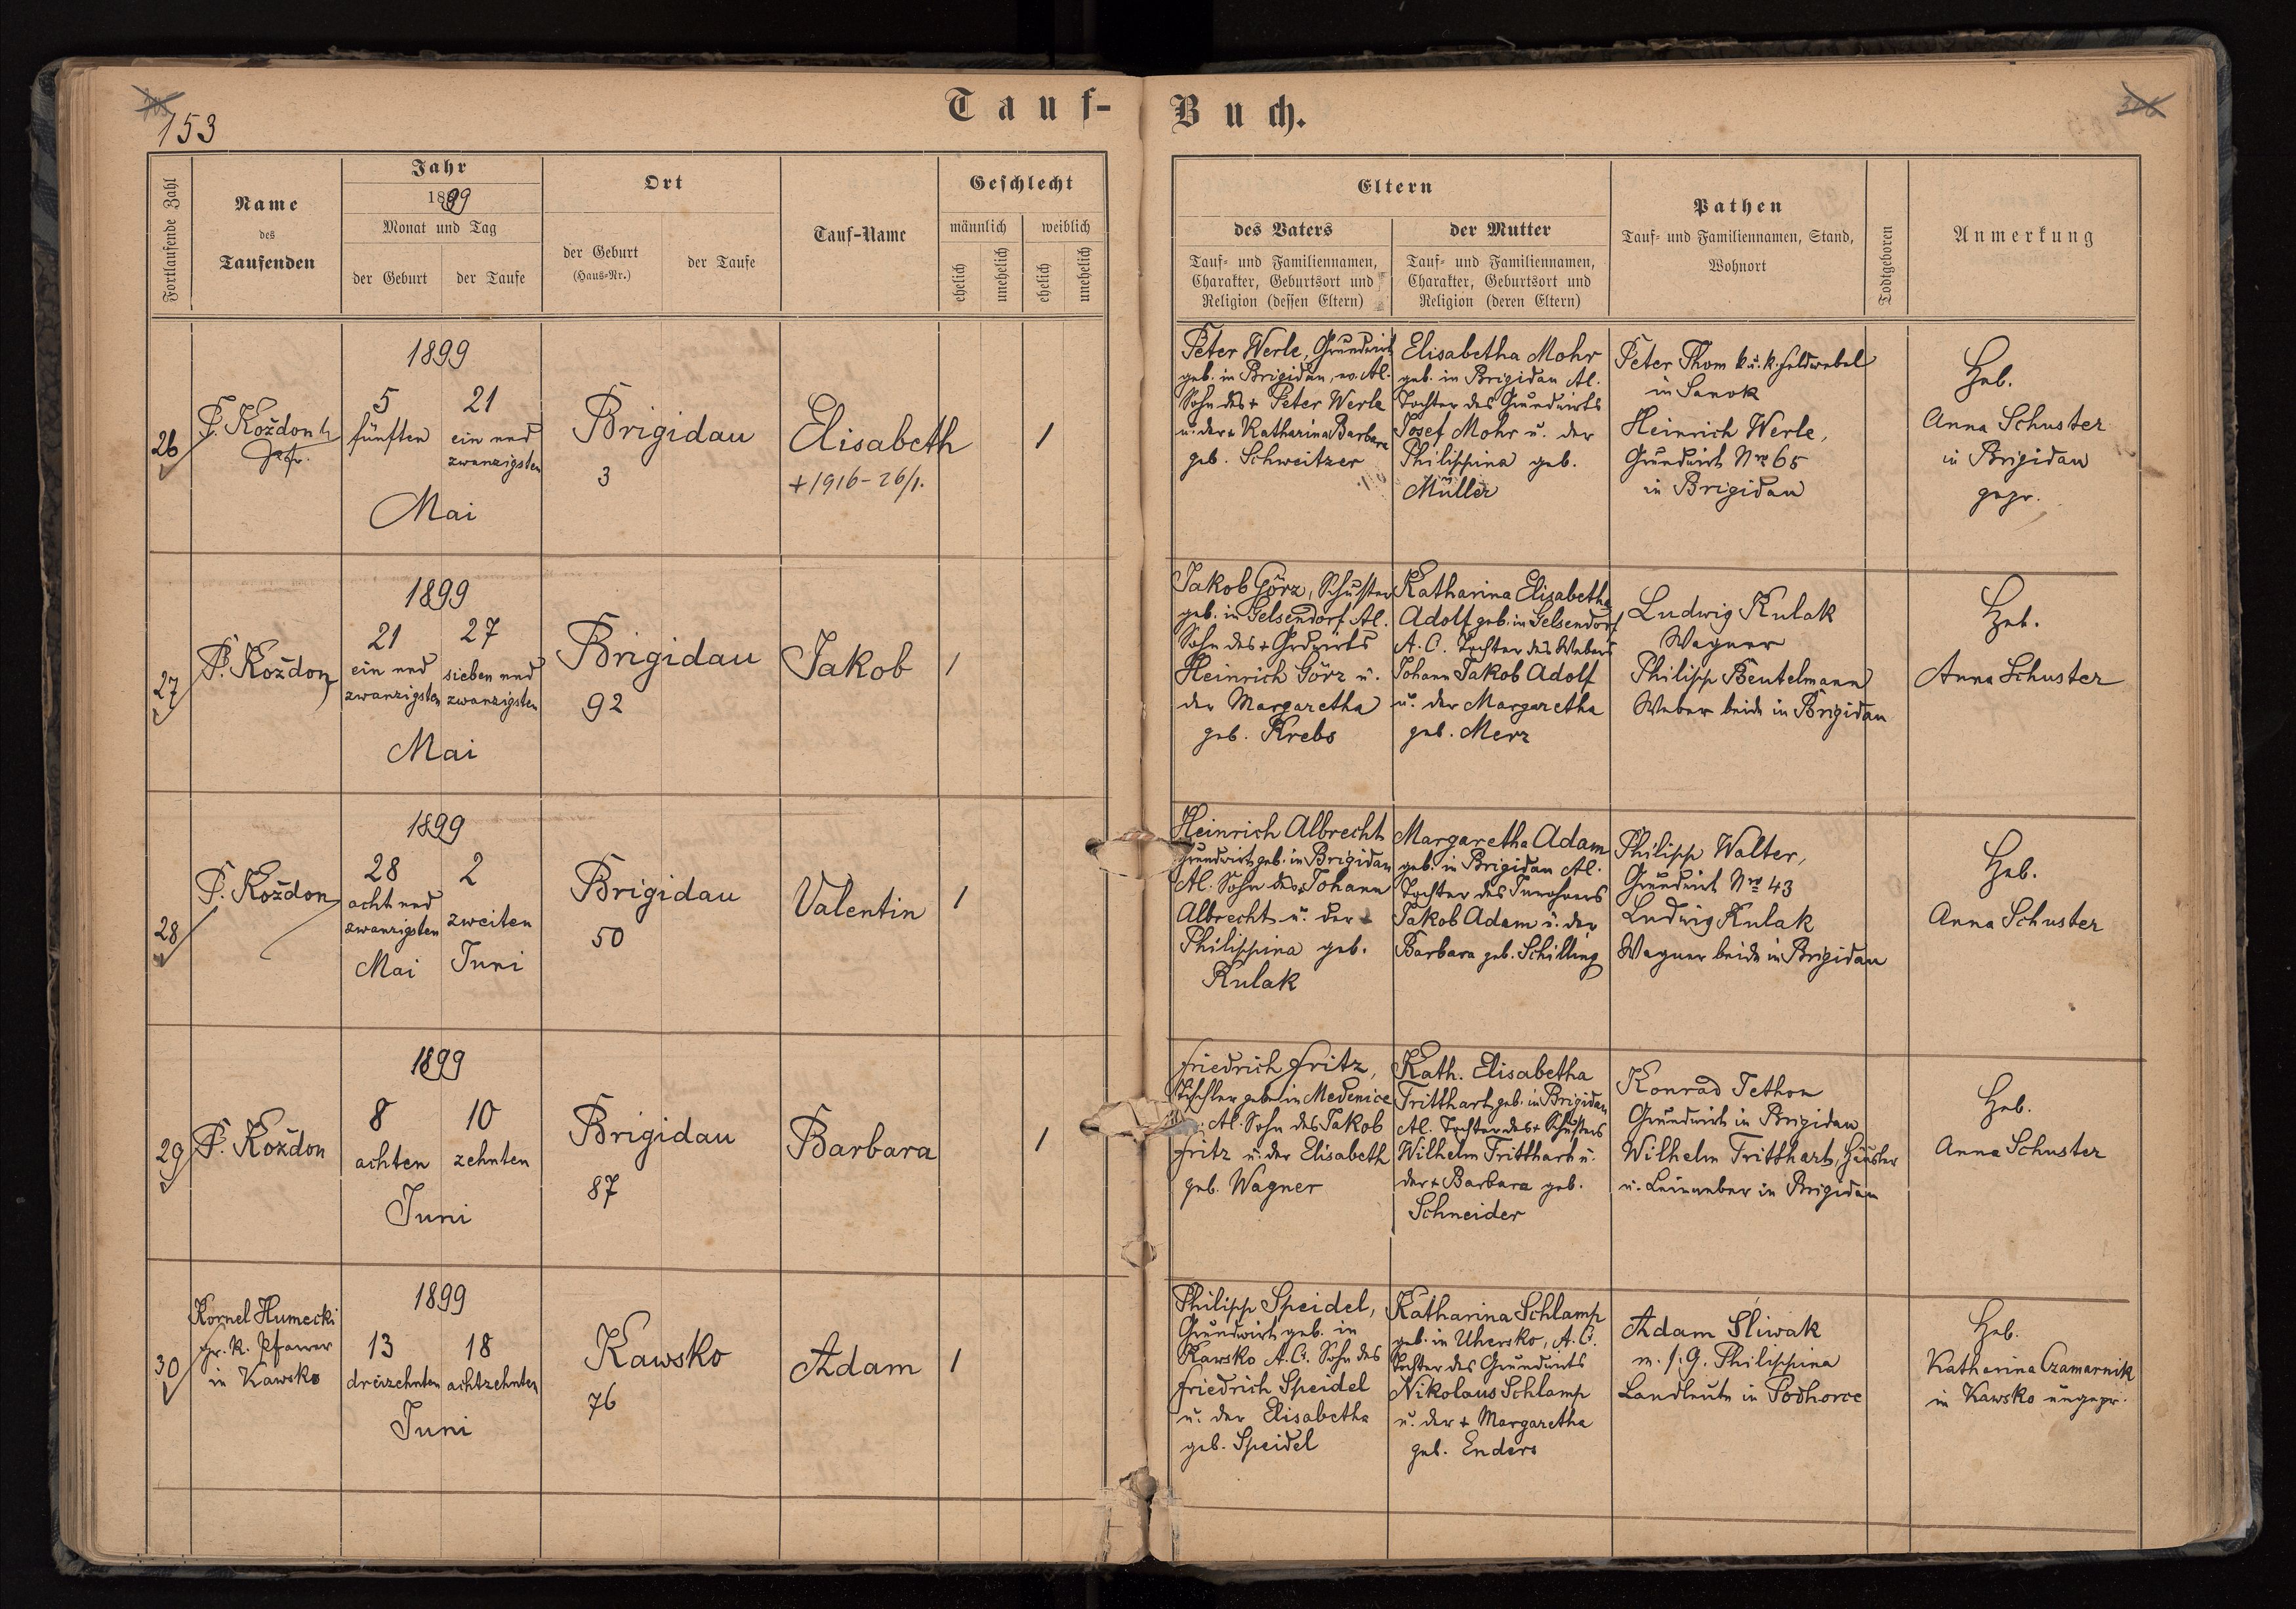 153
Tauf-
Buch.
Fortlaufende Zahl
Name
des
Taufenden
Jahr
1899
Monat und Tag
der Geburt
der Taufe
Ort
der Geburt
(Haus-Nr.)
der Taufe
Tauf-Name
Geschlecht
männlich
weiblich
ehelich
unehelich
ehelich
unehelich
Eltern
des Vaters
Tauf- und Familiennamen,
Charakter, Geburtsort und
Religion (dessen Eltern)
der Mutter
Tauf- und Familiennamen,
Charakter, Geburtsort und
Religion (deren Eltern)
Pathen
Tauf- und Familiennamen, Stand,
Wohnort
Todtgeboren
Anmerkung
26
P. Koždon
Pfr.
1899
5
fünften
21
ein und
zwanzigsten
Mai
Brigidau
3
Elisabeth
+ 1916-26/1.
1
Peter Werle, Grundwirt
geb. in Brigidau, ev. Al.
Sohn des + Peter Werle
u. der + Katharina Barbara
geb. Schweitzer
Elisabetha Mohr
geb. in Brigidau Al.
Tochter des Grundwirts
Josef Mohr u. der
Philippina geb.
Müller
Peter Thom k. u. k. Feldwebel
in Sanok
Heinrich Werle,
Grundwirt Nro 65
in Brigidau
Heb.
Anna Schuster
in Brigidau
gepr.
27
P. Koždon
1899
21
ein und
zwanzigsten
27
sieben und
zwanzigsten
Mai
Brigidau
92
Jakob
1
Jakob Görz, Schuster
geb. in Gelsendorf Al.
Sohn des + Grdwirts
Heinrich Görz u.
der Margaretha
geb. Krebs
Katharina Elisabetha
Adolf geb. in Gelsendorf
A. C. Tochter des Webers
Johann Jakob Adolf
u. der Margaretha
geb. Merz
Ludwig Kulak
Wagner
Philipp Beutelmann
Weber beide in Brigidau
Heb.
Anna Schuster
28
P. Koždon
1899
28
acht und
zwanzigsten
Mai
2
zweiten
Juni
Brigidau
50
Valentin
1
Heinrich Albrecht
Grundwirt geb. in Brigidau
Al. Sohn des + Johann
Albrecht u. der +
Philippina geb.
Kulak
Margaretha Adam
geb. in Brigidau Al.
Tochter des Inwohners
Jakob Adam u. der
Barbara geb. Schilling
Philipp Walter,
Grundwirt Nro 43
Ludwig Kulak
Wagner beide in Brigidau
Heb.
Anna Schuster
29
P. Koždon
1899
8
achten
10
zehnten
Juni
Brigidau
87
Barbara
1
Friedrich Fritz,
Tischler geb. in Medenice
Al. Sohn des Jakob
Fritz u. der Elisabeth
geb. Wagner
Kath. Elisabetha
Tritthart geb. in Brigidau
Al. Tochter des + Schusters
Wilhelm Tritthart u.
der + Barbara geb.
Schneider
Konrad Tethon
Grundwirt in Brigidau
Wilhelm Tritthart, Häusler
u. Leinweber in Brigidau
Heb.
Anna Schuster
30
Kornel Humecki
gr. K. Pfarrer
in Kawsko
1899
13
dreizehnten
18
achtzehnten
Juni
Kawsko
76
Adam
1
Philipp Speidel,
Grundwirt geb. in
Kawsko A. C. Sohn des
Friedrich Speidel
u. der Elisabetha
geb. Speidel
Katharina Schlamp
geb. in Uhersko, A. C.
Tochter des Grundwirts
Nikolaus Schlamp
u. der + Margaretha
geb. Enders
Adam Śliwak
m. s. G. Philippina
Landleute in Podhorce
Heb.
Katharina Czamarnik
in Kawsko ungepr.